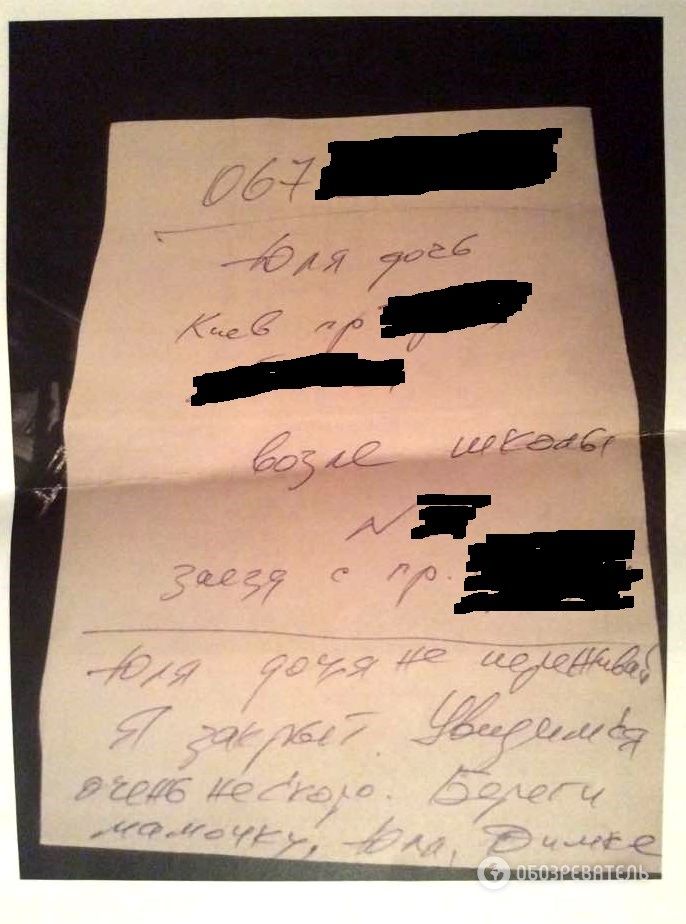 067
Юля дочь
Киев пр
возле школы
N
заезд с пр.
Юля доця не переживай
Я закрыт. Увидимся
очень нескоро. Береги
мамочку, Юла, Димке
ОБОЗРЕВАТЕЛЬ